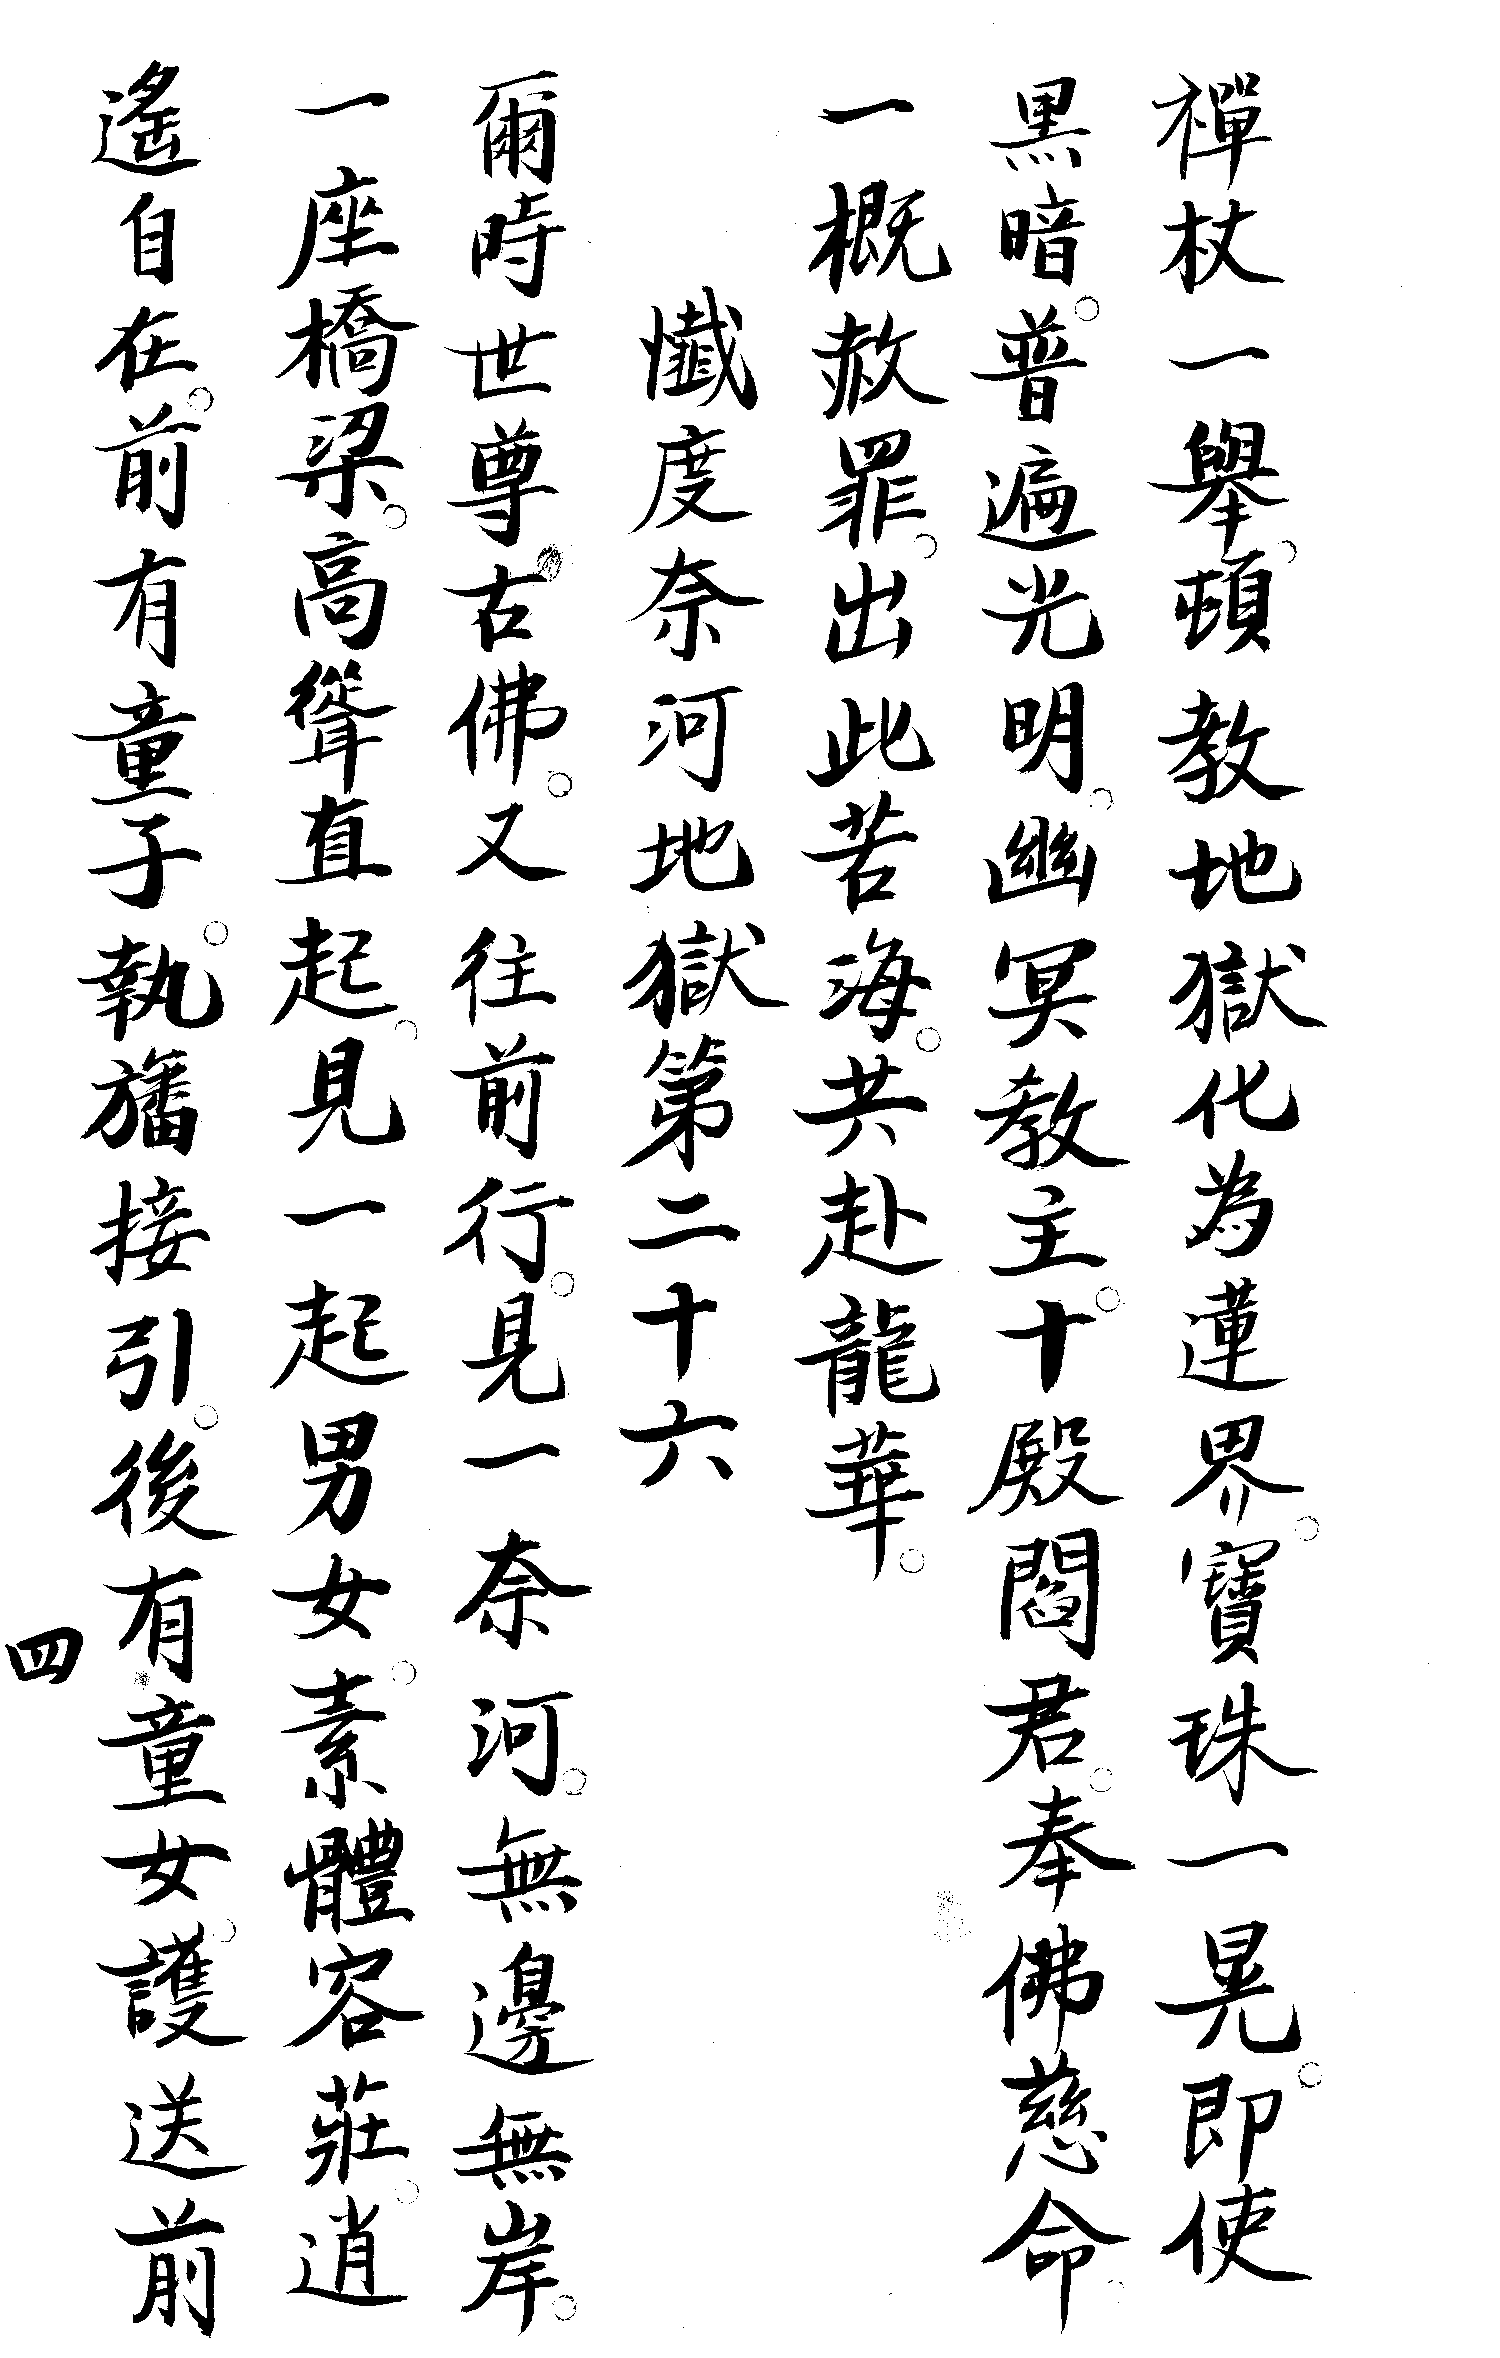 禪杖一舉。頓教地獄化為蓮界。寶珠一晃。即使
黑暗。普遍光明。幽冥教主。十殿閻君。奉佛慈命。
一概赦罪。出此苦海。共赴龍華。
懺度奈河地獄第二十六
爾時世尊古佛。又往前行。見一奈河。無邊無岸。
一座橋梁。高聳直起。見一起男女。素體容莊。逍
遙自在。前有童子。執旛接引。後有童女。護送前
四